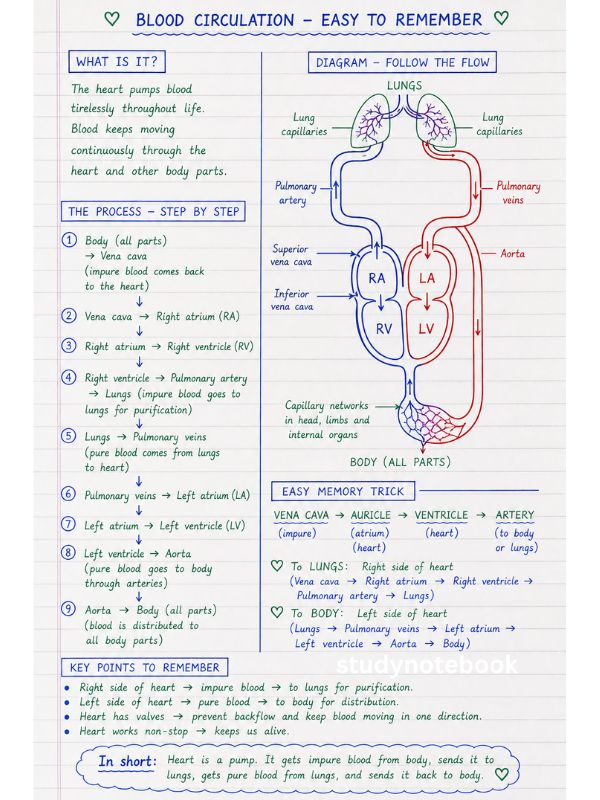 BLOOD CIRCULATION – EASY TO REMEMBER
WHAT IS IT?
The heart pumps blood
tirelessly throughout life.
Blood keeps moving
continuously through the
heart and other body parts.
THE PROCESS – STEP BY STEP
1 Body (all parts)
→ Vena cava
(impure blood comes back
to the heart)
↓
2 Vena cava → Right atrium (RA)
↓
3 Right atrium → Right ventricle (RV)
↓
4 Right ventricle → Pulmonary artery
→ Lungs (impure blood goes to
lungs for purification)
↓
5 Lungs → Pulmonary veins
(pure blood comes from lungs
to heart)
↓
6 Pulmonary veins → Left atrium (LA)
↓
7 Left atrium → Left ventricle (LV)
↓
8 Left ventricle → Aorta
(pure blood goes to body
through arteries)
↓
9 Aorta → Body (all parts)
(blood is distributed to
all body parts)
DIAGRAM – FOLLOW THE FLOW
LUNGS
Lung
capillaries
Lung
capillaries
Pulmonary
artery
Pulmonary
veins
Superior
vena cava
Aorta
Inferior
vena cava
RA
LA
RV
LV
Capillary networks
in head, limbs and
internal organs
BODY (ALL PARTS)
EASY MEMORY TRICK
VENA CAVA → AURICLE → VENTRICLE → ARTERY
(impure) (atrium) (heart) (to body
(heart) or lungs)
♡ To LUNGS: Right side of heart
(Vena cava → Right atrium → Right ventricle →
Pulmonary artery → Lungs)
♡ To BODY: Left side of heart
(Lungs → Pulmonary veins → Left atrium →
Left ventricle → Aorta → Body)
studynotebook
KEY POINTS TO REMEMBER
• Right side of heart → impure blood → to lungs for purification.
• Left side of heart → pure blood → to body for distribution.
• Heart has valves → prevent backflow and keep blood moving in one direction.
• Heart works non-stop → keeps us alive.
In short: Heart is a pump. It gets impure blood from body, sends it to
lungs, gets pure blood from lungs, and sends it back to body.